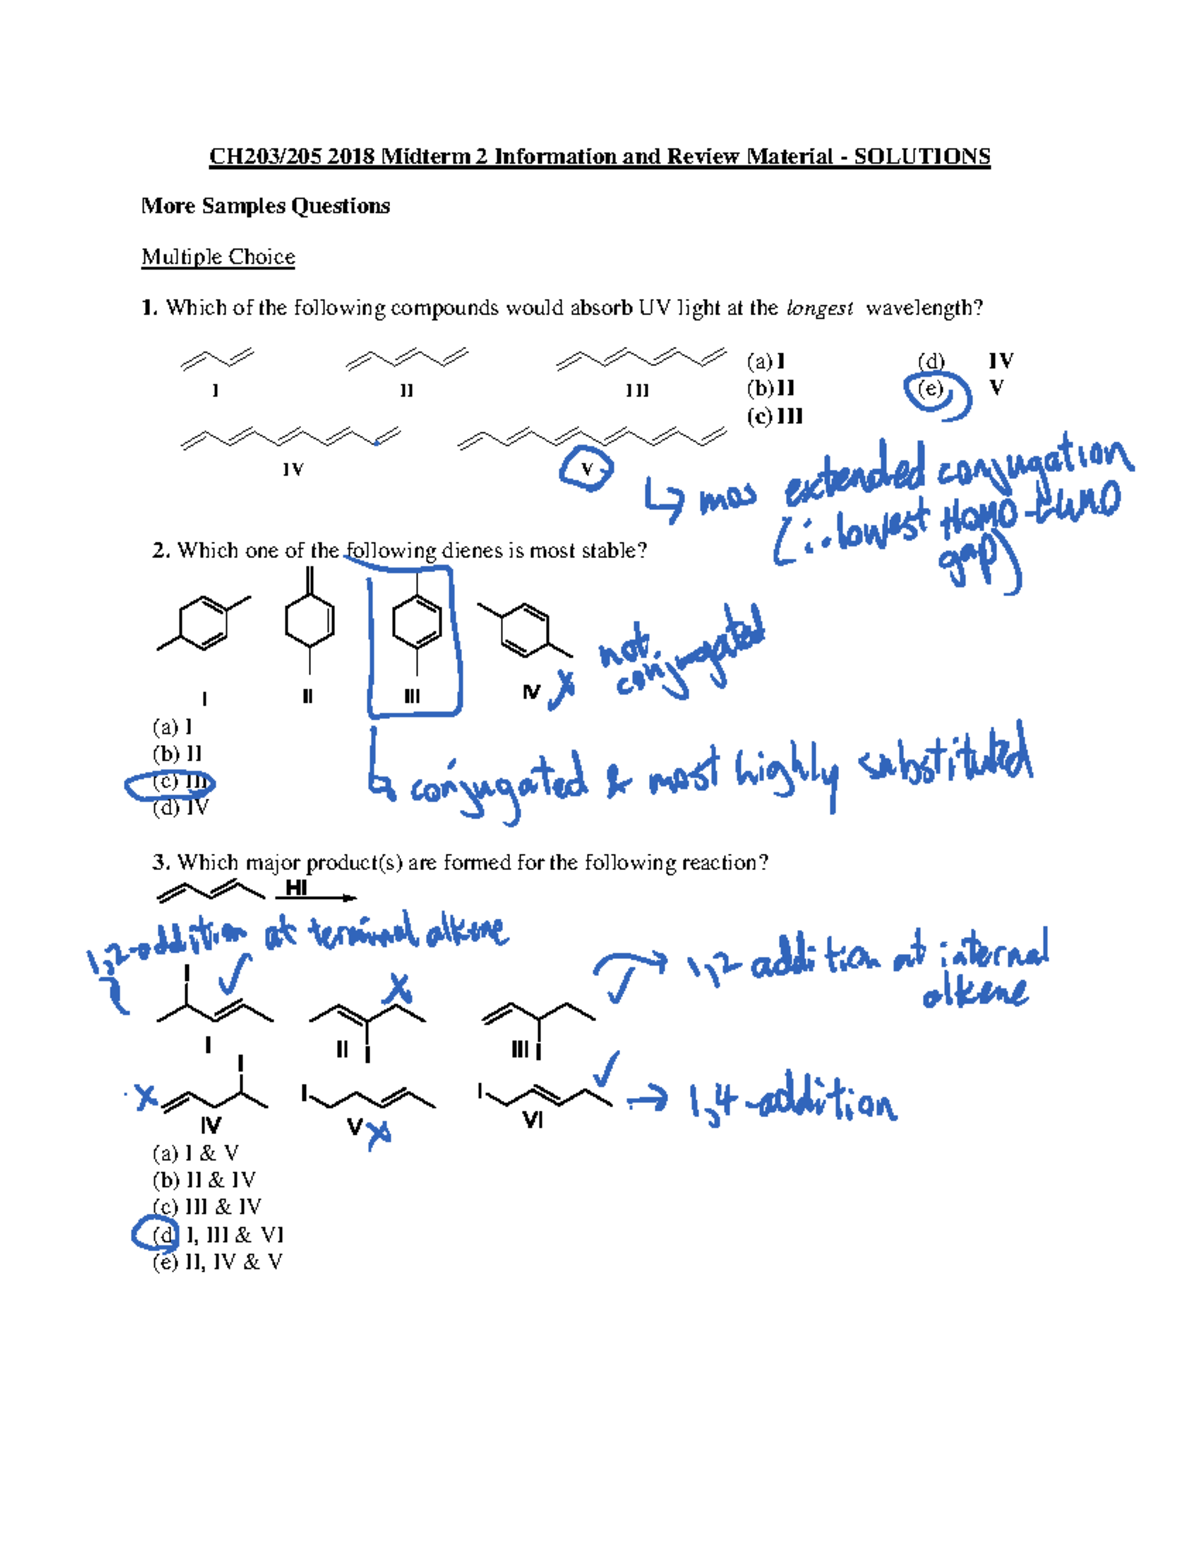 CH203/205 2018 Midterm 2 Information and Review Material - SOLUTIONS
More Samples Questions
Multiple Choice
1. Which of the following compounds would absorb UV light at the longest wavelength?
I
II
III
(a) I
(d) IV
(b) II
(e) V
(c) III
IV
V
↳ mos extended conjugation
(∴ lowest HOMO-LUMO
gap)
2. Which one of the following dienes is most stable?
I
II
III
IV
x
not
conjugated
(a) I
(b) II
(c) III
(d) IV
↳ conjugated & most highly substituted
3. Which major product(s) are formed for the following reaction?
HI
1,2-addition at terminal alkene
→ 1,2 addition at internal
alkene
I
✓
I
x
II
I
III
I
✓
x
I
IV
I
V
x
I
VI
✓
→ 1,4-addition
(a) I & V
(b) II & IV
(c) III & IV
(d) I, III & VI
(e) II, IV & V